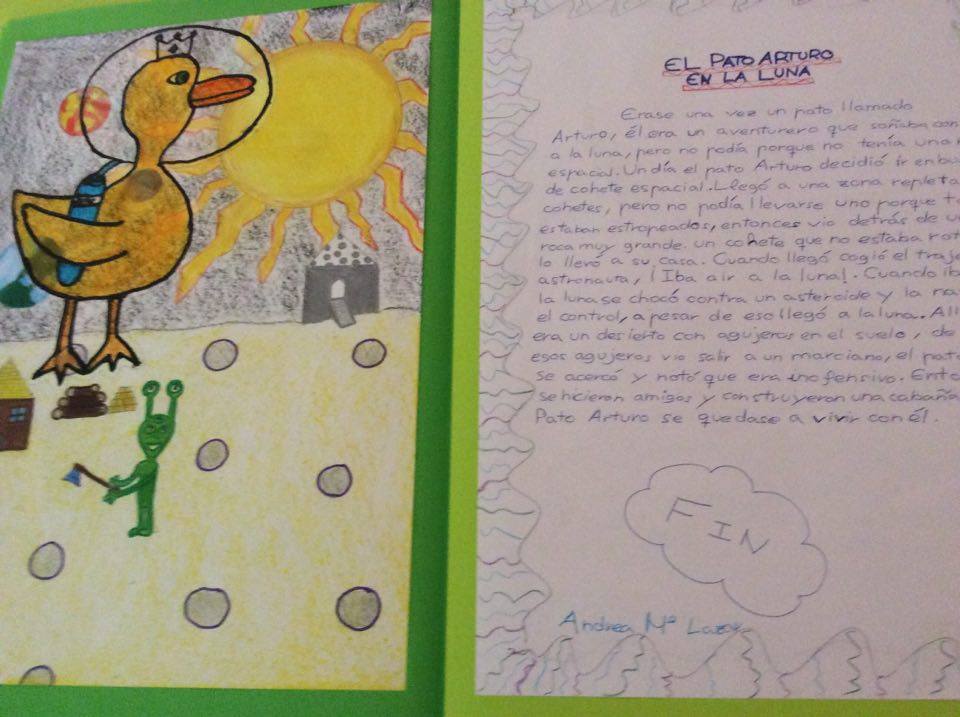 EL PATO ARTURO
EN LA LUNA
Erase una vez un pato llamado
Arturo, él era un aventurero que soñaba con
a la luna, pero no podía porque no tenía una
espacial. Un día el pato Arturo decidió ir en bu
de cohete espacial. Llegó a una zona repleta
cohetes, pero no podía llevarse uno porque t
estaban estropeados, entonces vio detrás de u
roca muy grande un cohete que no estaba rot
lo llevó a su casa. Cuando llegó cogió el traje
astronauta, ¡Iba a ir a la luna!. Cuando ib
la luna se chocó contra un asteroide y la na
el control, a pesar de eso llegó a la luna. All
era un desierto con agujeros en el suelo, de
esos agujeros vio salir a un marciano, el pat
se acercó y notó que era inofensivo. Ento
se hicieron amigos y construyeron una cabaña
Pato Arturo se quedase a vivir con él.
FIN
Andrea Mª